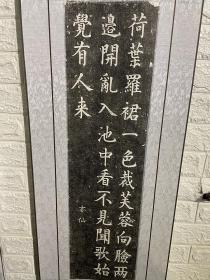 荷葉羅裙一色裁芙蓉向臉兩
邉開亂入池中看不見聞歌始
覺有人来